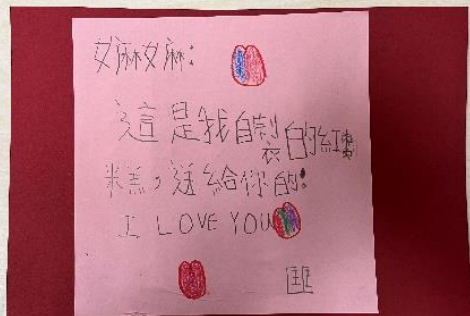 媽媽:
這是我自製的紅糖
糕，送給你的!
I LOVE YOU
匡